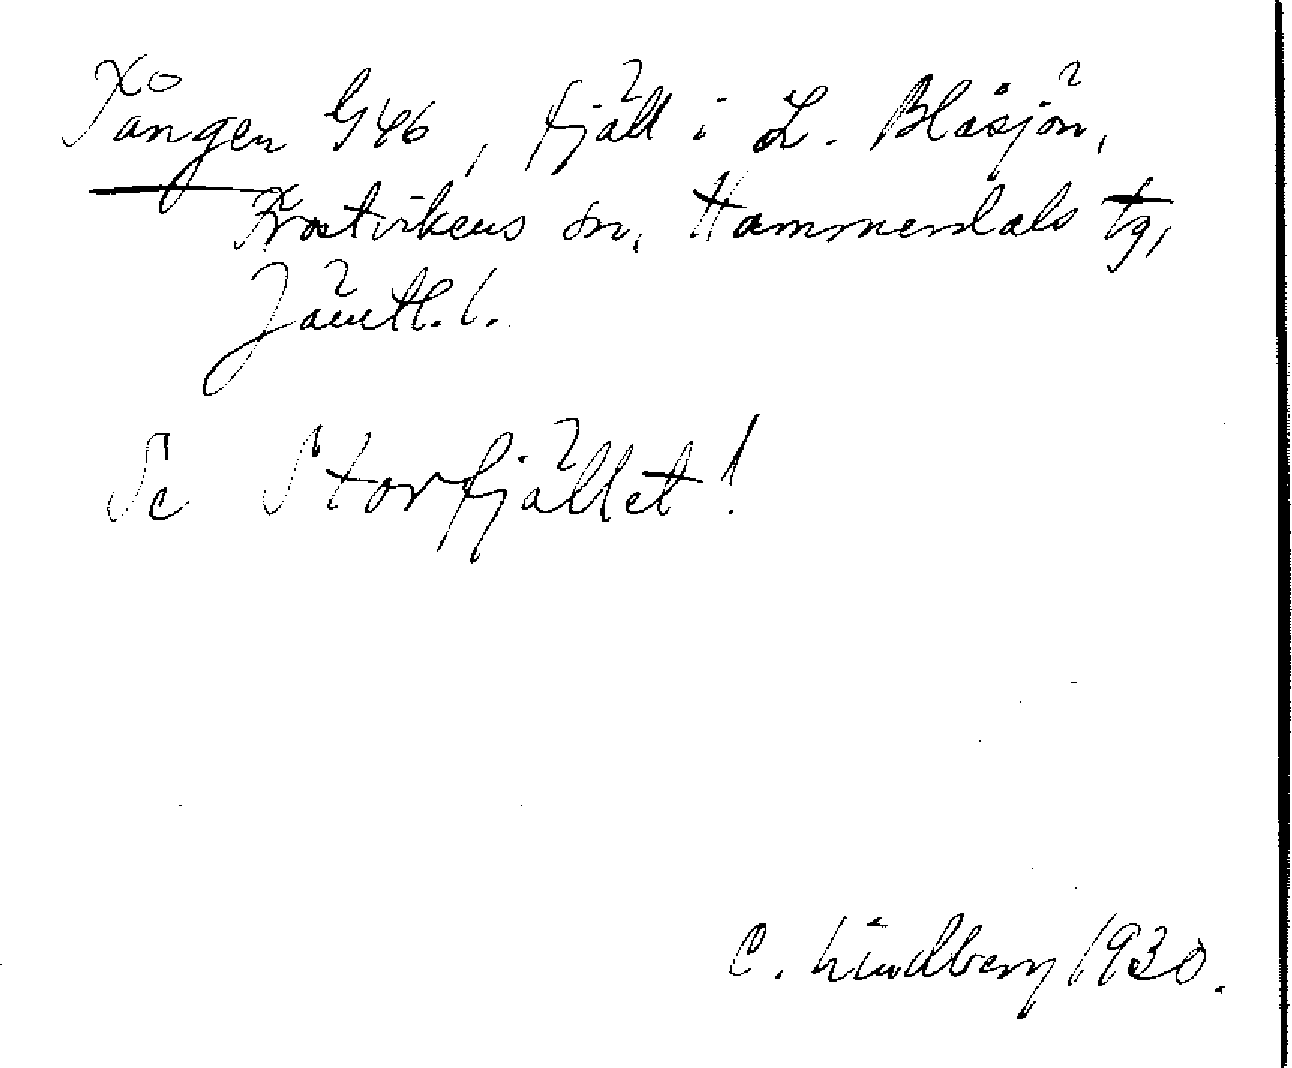 Tången G46, fjäll i L. Blåsjön,
Frostvikens sn, Hammerdals tg,
Jämtl. l.
Se Storfjället!
C. Lindberg 1930.